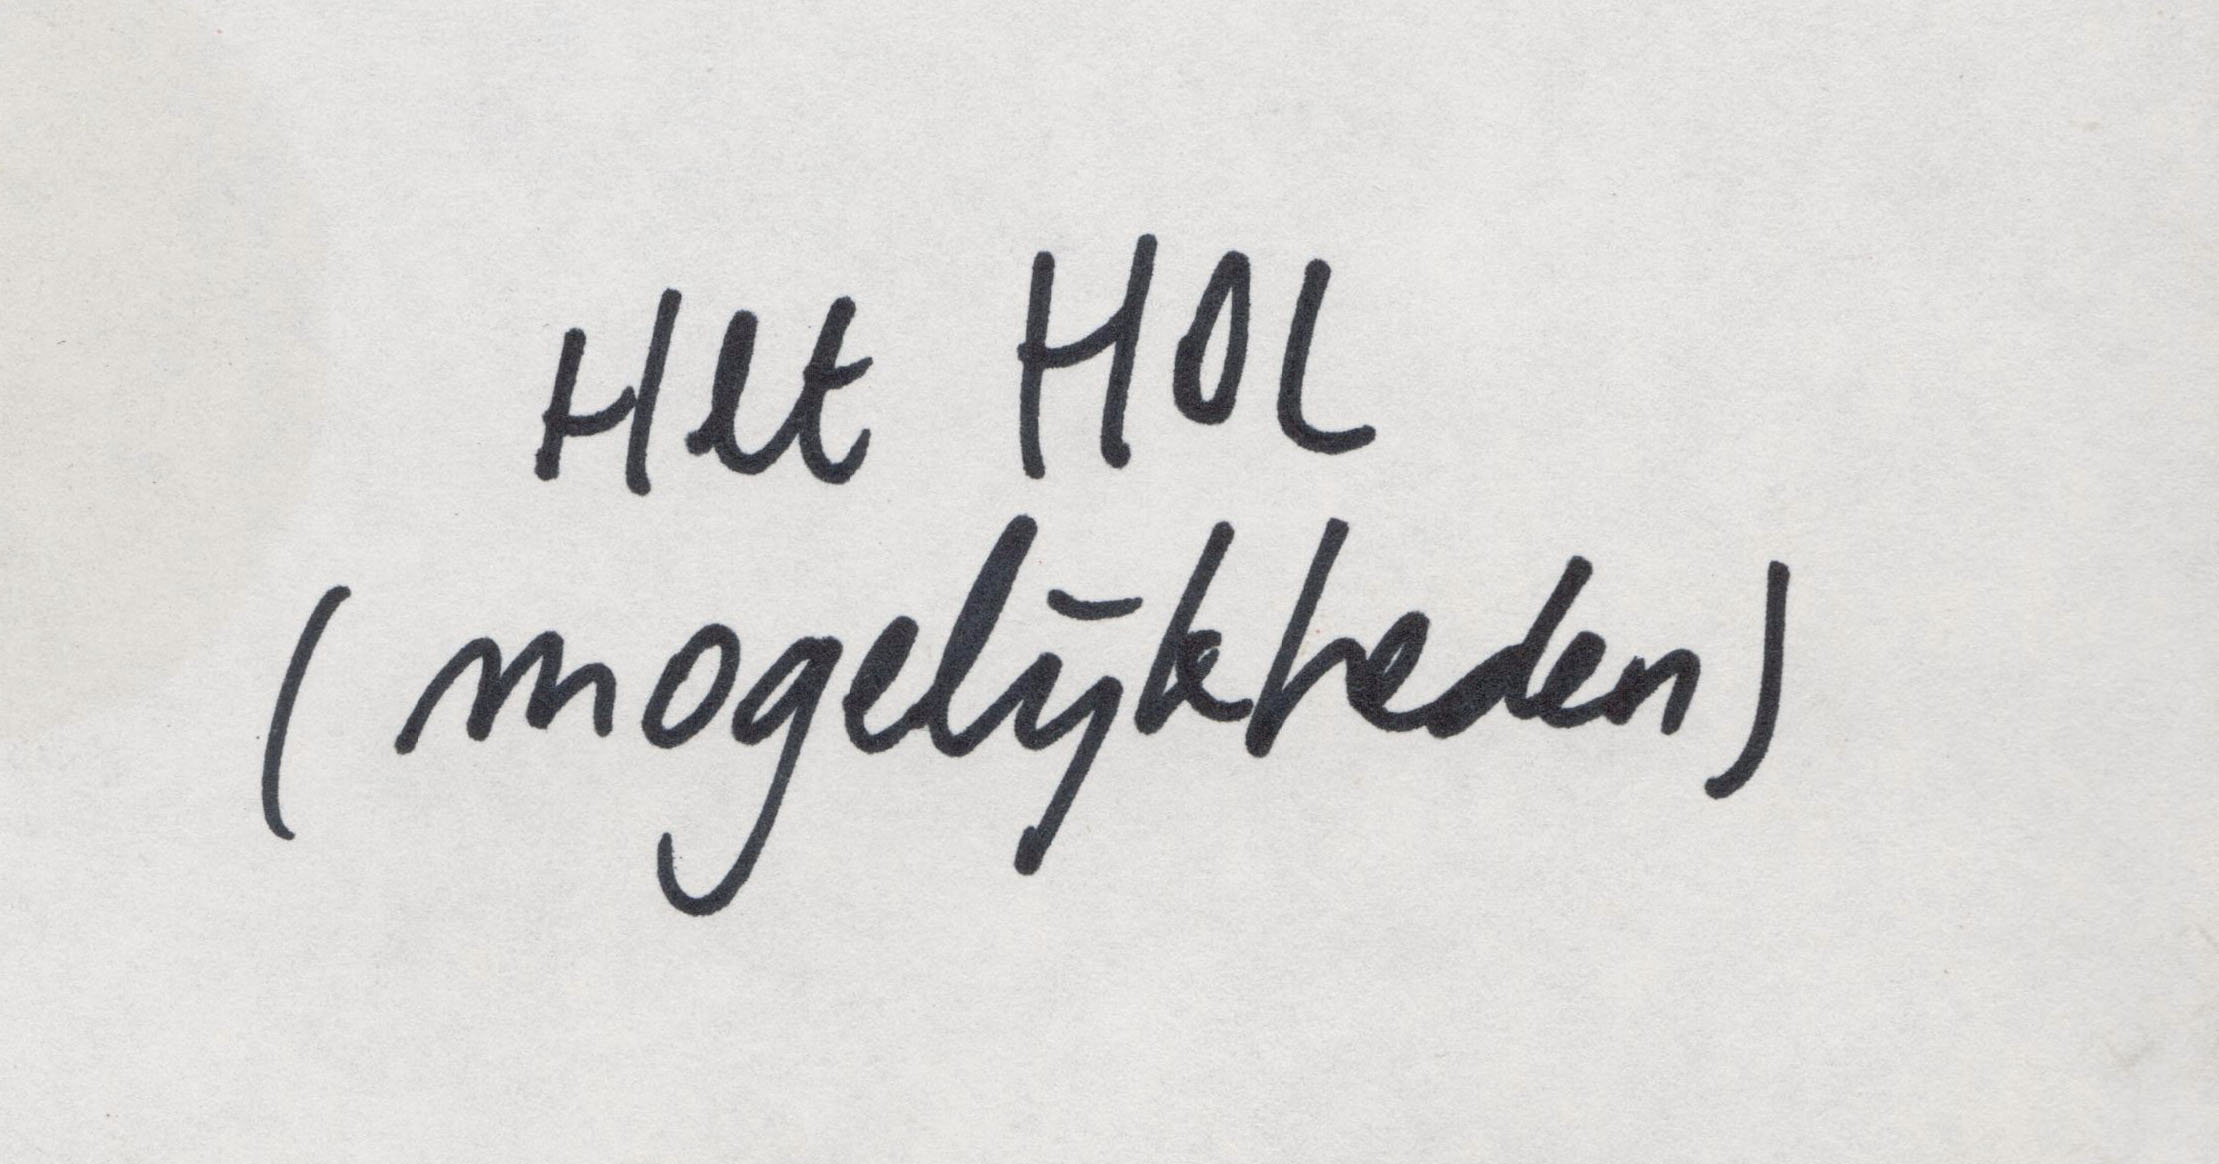 Het HOL
(mogelijkheden)